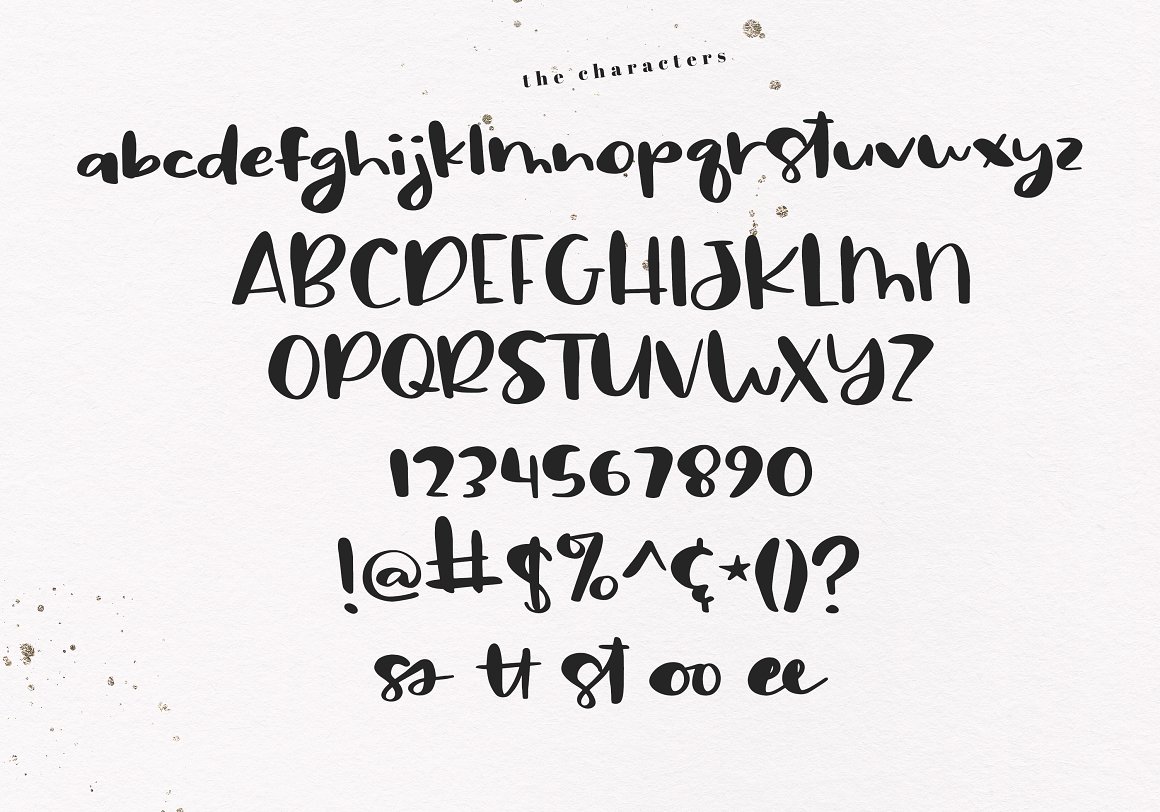 the characters
abcdefghijklmnopqrstuvwxyz
ABCDEFGHIJKLMN
OPQRSTUVWXYZ
1234567890
!@#$%^&*()?
ss tt st oo ee